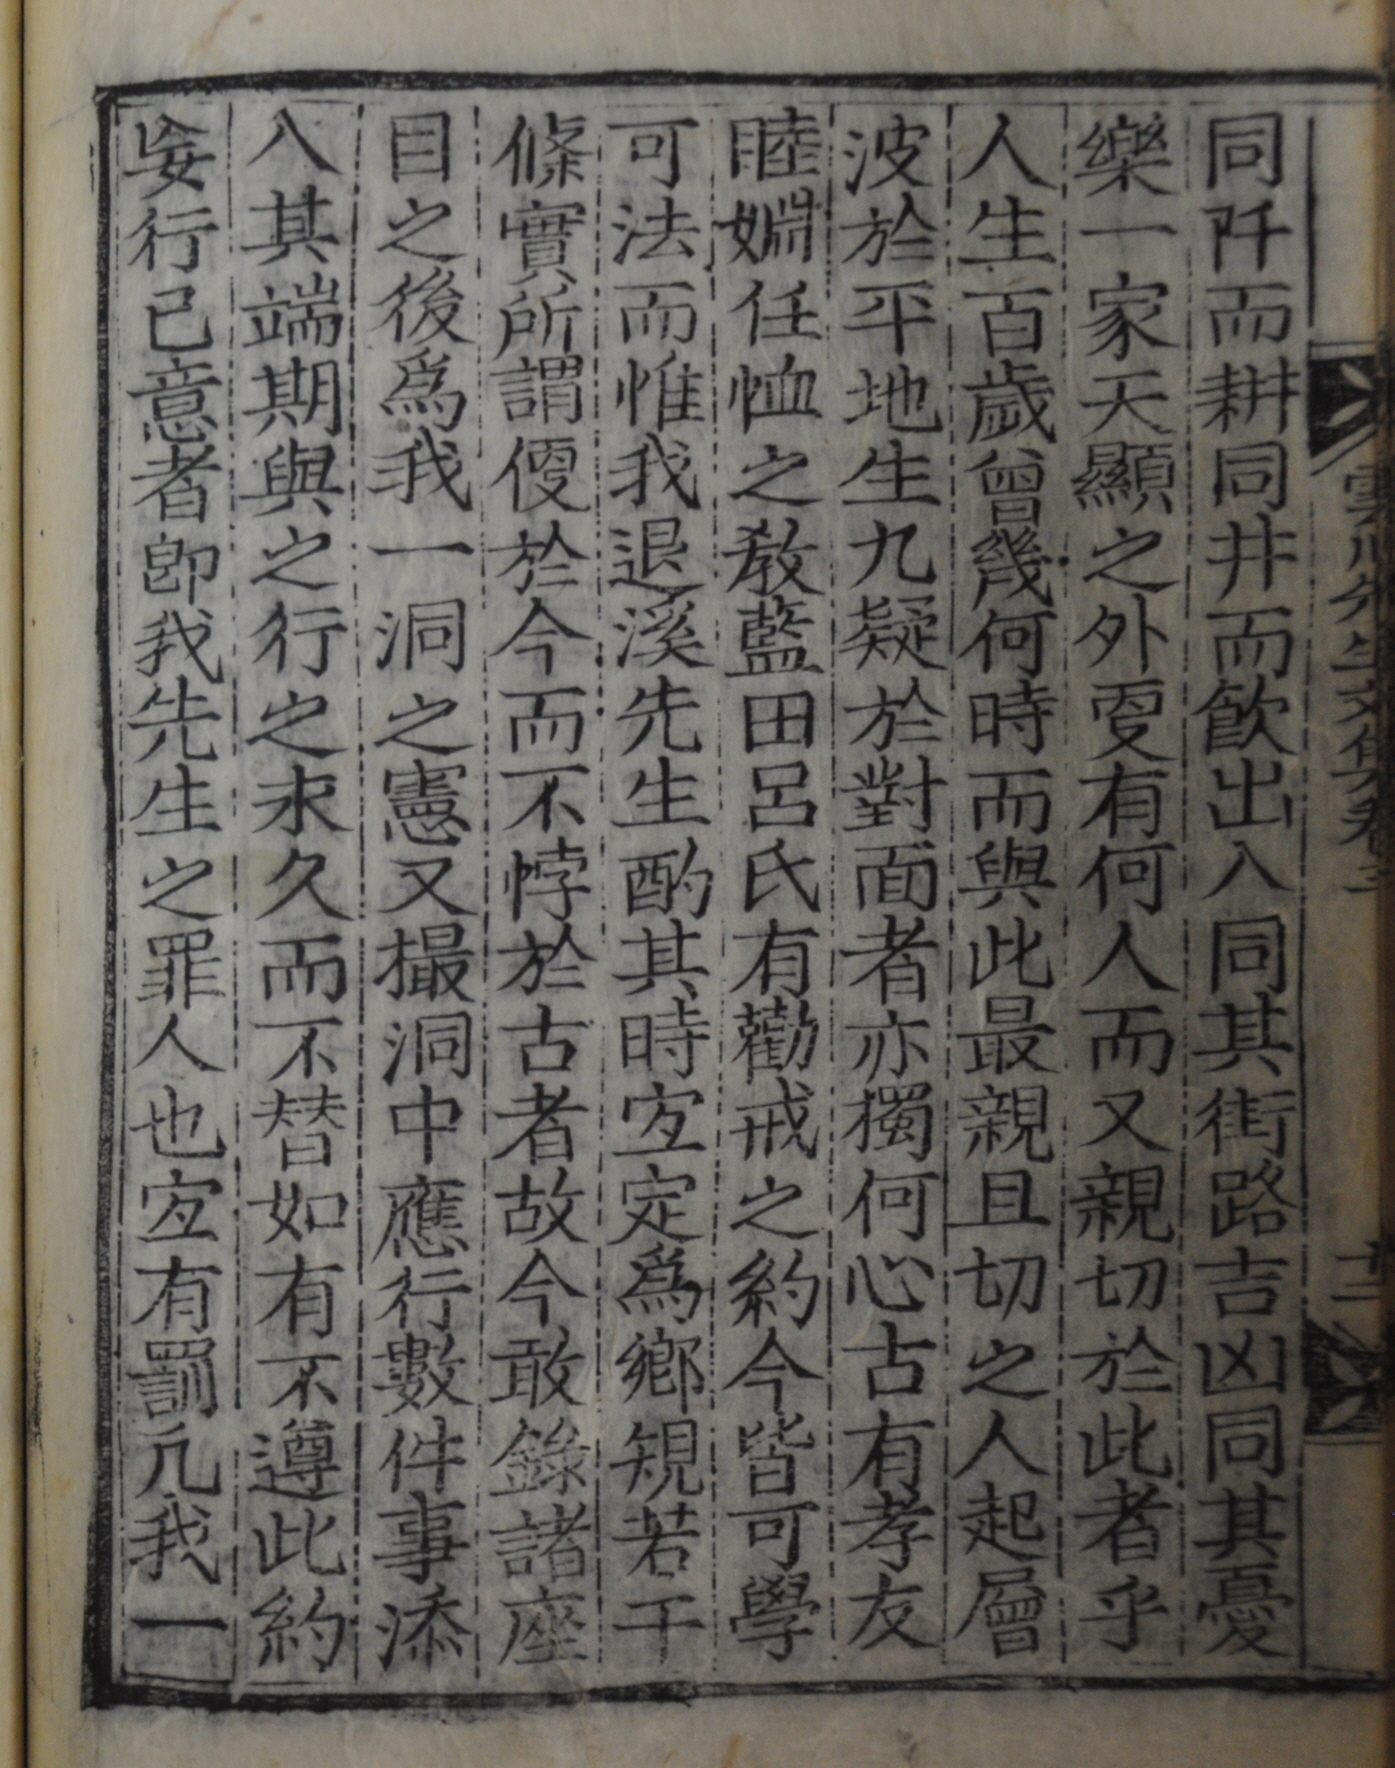 同阡而耕同井而飮出入同其街路吉凶同其憂
樂一家天顯之外更有何人而又親切於此者乎
人生百歲曾幾何時而與此最親且切之人起層
波於平地生九疑於對面者亦獨何心古有孝友
睦婣任恤之敎藍田呂氏有勸戒之約今皆可學
可法而惟我退溪先生酌其時宜定爲鄕規若干
條實所謂便於今而不悖於古者故今敢錄諸座
目之後爲我一洞之憲又撮洞中應行數件事添
入其端期與之行之永久而不替如有不遵此約
妄行己意者卽我先生之罪人也宜有罰凡我一
先生文集卷三
十二